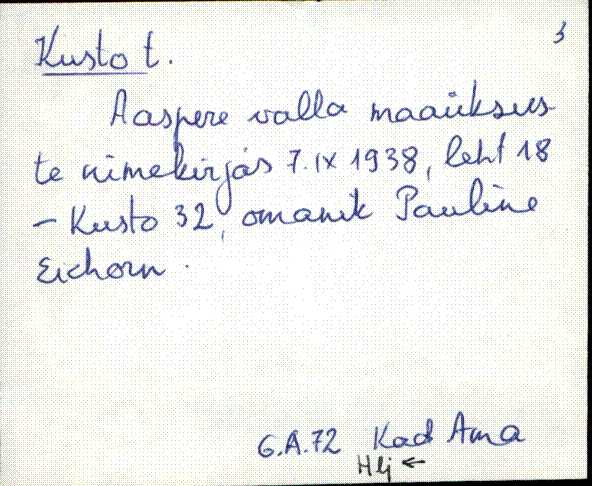 3
Kusto t.
Aaspere valla maaüksus-
te nimekirjas 7.IX 1938, leht 18
– Kusto 32, omanik Pauline
Eichorn.
G.A.72 Kad Ama
Hlj ←